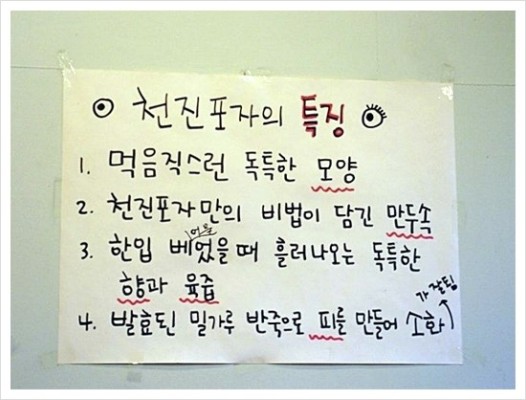 천진포자의 특징
1. 먹음직스런 독특한 모양
2. 천진포자만의 비법이 담긴 만두속
어물
3. 한입 베었을때 흘러나오는 독특한
향과 육즙
가 잘됨
4. 발효된 밀가루 반죽으로 피를 만들어 소화